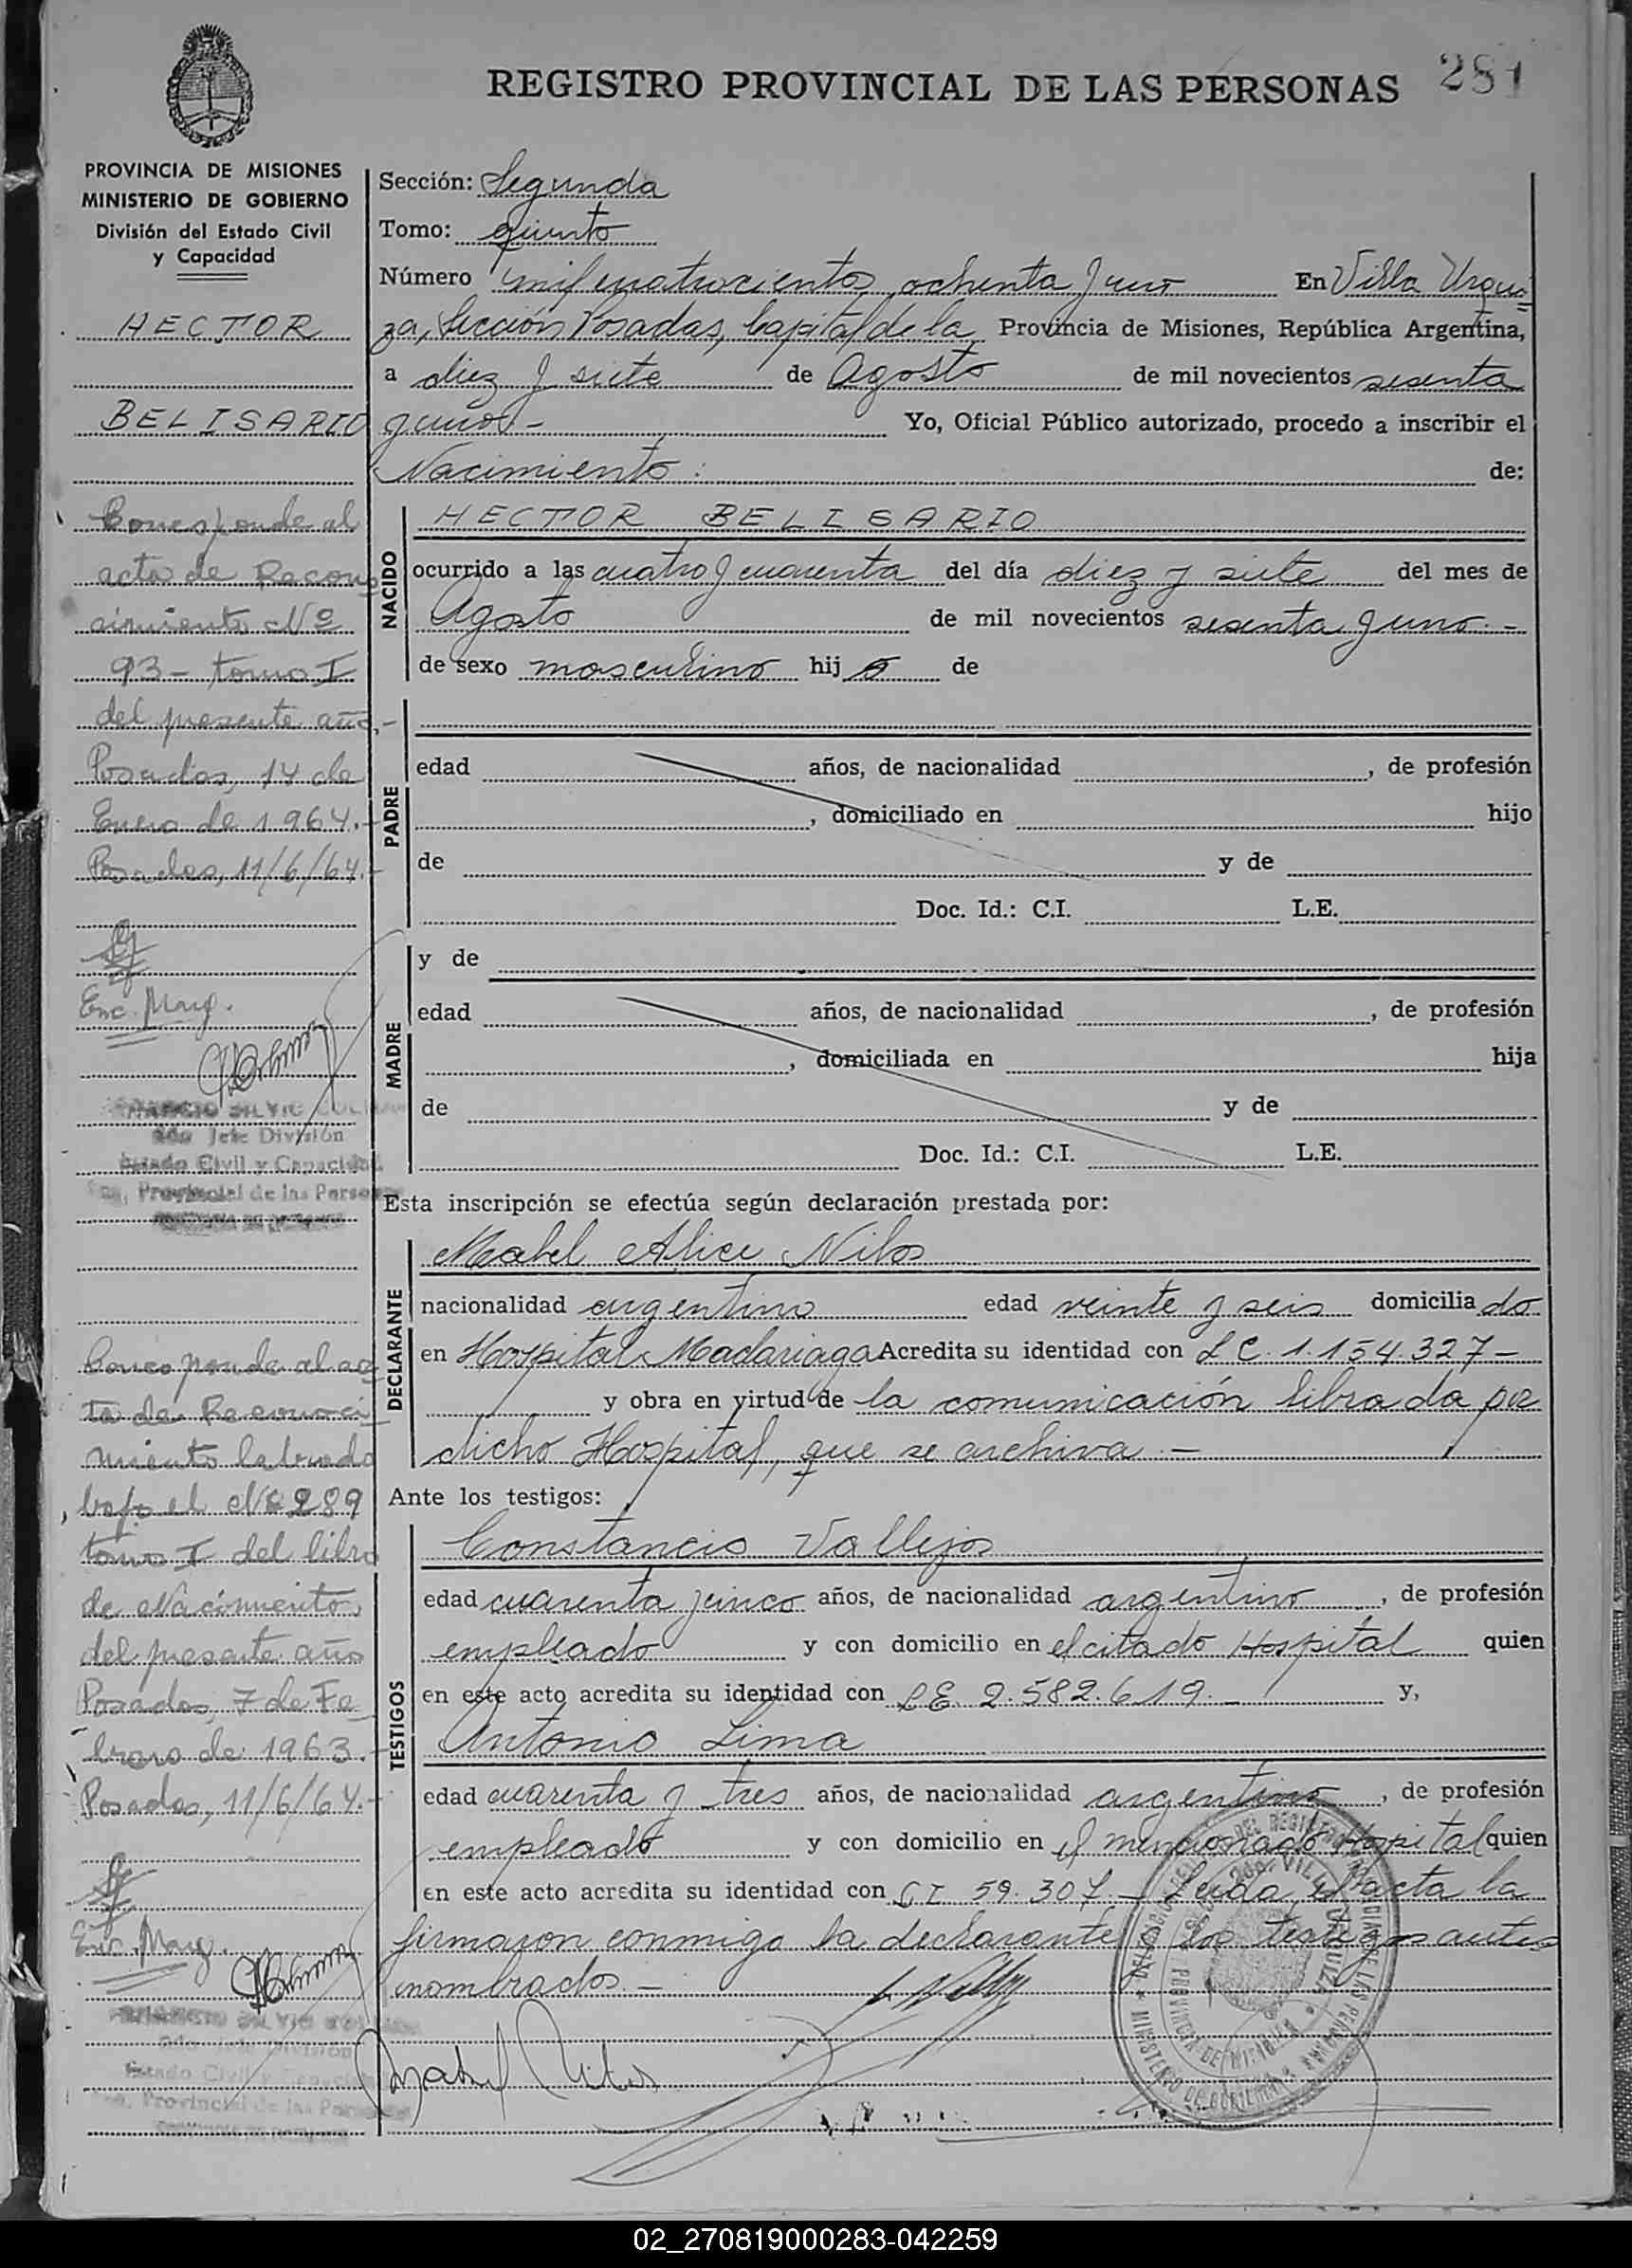 REGISTRO PROVINCIAL DE LAS PERSONAS 281
PROVINCIA DE MISIONES
MINISTERIO DE GOBIERNO
División del Estado Civil
y Capacidad
HECTOR
BELISARIO
Corresponde al
acta de Recono
cimiento Nº
93- tomo I
del presente año.-
Posadas, 14 de
Enero de 1964.-
Posadas, 11/6/64.-
Enc. Marg.
2do Jefe División
Estado Civil y Capacidad
Provincial de las Personas
Corresponde al ac
ta de Reconoci
miento labrado
bajo el Nº 289
tomo I del libro
de Nacimiento,
del presente año
Posadas, 7 de Fe
brero de 1963.-
Posadas, 11/6/64.-
Enc. Marg.
2do Jefe División
Estado Civil y Capacidad
Provincial de las Personas
Sección: Segunda
Tomo: quinto
Número mil cuatrocientos ochenta y uno En Villa Urqui
za, Sección Posadas, Capital de la Provincia de Misiones, República Argentina,
a diez y siete de Agosto de mil novecientos sesenta
y uno.- Yo, Oficial Público autorizado, procedo a inscribir el
Nacimiento: de:
NACIDO
HECTOR BELISARIO
ocurrido a las cuatro y cuarenta del día diez y siete del mes de
Agosto de mil novecientos sesenta y uno.-
de sexo masculino hijo de
PADRE
edad años, de nacionalidad , de profesión
, domiciliado en hijo
de y de
Doc. Id.: C.I. L.E.
MADRE
y de
edad años, de nacionalidad , de profesión
, domiciliada en hija
de y de
Doc. Id.: C.I. L.E.
Esta inscripción se efectúa según declaración prestada por:
DECLARANTE
Mabel Alice Nilos
nacionalidad argentina edad veinte y seis domiciliado
en Hospital Madariaga Acredita su identidad con LC. 1.154.327-
y obra en virtud de la comunicación librada por
dicho Hospital, que se archiva.-
Ante los testigos:
TESTIGOS
Constancio Vallejos
edad cuarenta y cinco años, de nacionalidad argentino , de profesión
empleado y con domicilio en el citado Hospital quien
en este acto acredita su identidad con LE. 2.582.619.- y,
Antonio Lima
edad cuarenta y tres años, de nacionalidad argentino , de profesión
empleado y con domicilio en el mencionado Hospital quien
en este acto acredita su identidad con CI 59.307.- Leida el acta la
firmaron conmigo la declarante y los testigos antes
nombrados.-
Mabel Nilos
02_270819000283-042259